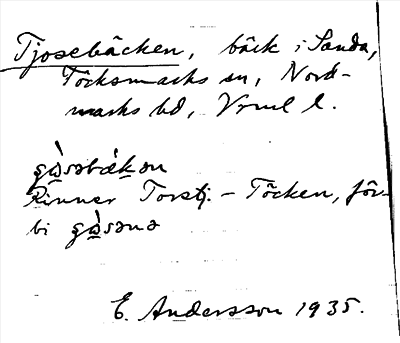 Tjosebäcken, bäck i Sanda,
Töcksmarks sn, Nord-
marks hd, Vrml l.
gɑ̀səbækən
Rinner Torstj. - Töcken, för-
bi gɑ̀sənə
E. Andersson 1935.